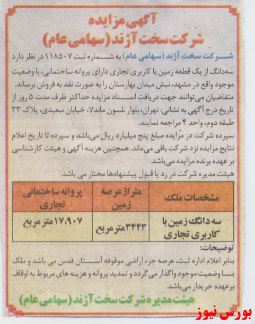 آگهی مزایده
شرکت سخت آژند (سهامی عام)
شرکت سخت آژند (سهامی عام) به شماره ثبت ۱۱۸۵۰۷ در نظر دارد
سه‌دانگ از یک قطعه زمین با کاربری تجاری دارای پروانه ساختمانی، با وضعیت
موجود واقع در مشهد، نبش میدان بهارستان را به صورت نقد به فروش برساند.
متقاضیان می‌توانند جهت دریافت اسناد مزایده حداکثر ظرف مدت ۵ روز از
تاریخ درج آگهی به نشانی: تهران، بلوار نلسون ماندلا، خیابان سعیدی، پلاک ۳۳
طبقه دوم، واحد ۴ مراجعه نمایند.
سپرده شرکت در مزایده مبلغ پنج میلیارد ریال می‌باشد و سپرده تا تاریخ اعلام
نتایج مزایده نزد شرکت باقی می‌ماند. همچنین هزینه آگهی و هیئت کارشناسی
بر عهده برنده مزایده می‌باشد.
هیئت مدیره شرکت در رد یا قبول پیشنهادها مختار می‌باشد.
مشخصات ملک
متراژ عرصه زمین
پروانه ساختمانی تجاری
سه دانگ زمین با کاربری تجاری
۳۴۴۳ مترمربع
۱۷,۹۰۷ مترمربع
توضیحات:
بنابر اعلام اداره ثبت، عرصه جزء اراضی موقوفه آستان قدس می باشد و ملک
با وضعیت موجود واگذار می‌گردد و تمدید پروانه و هزینه های مربوط به اوقاف
برعهده خریدار می باشد.
هیئت مدیره شرکت سخت آژند (سهامی عام)
بورس نیوز